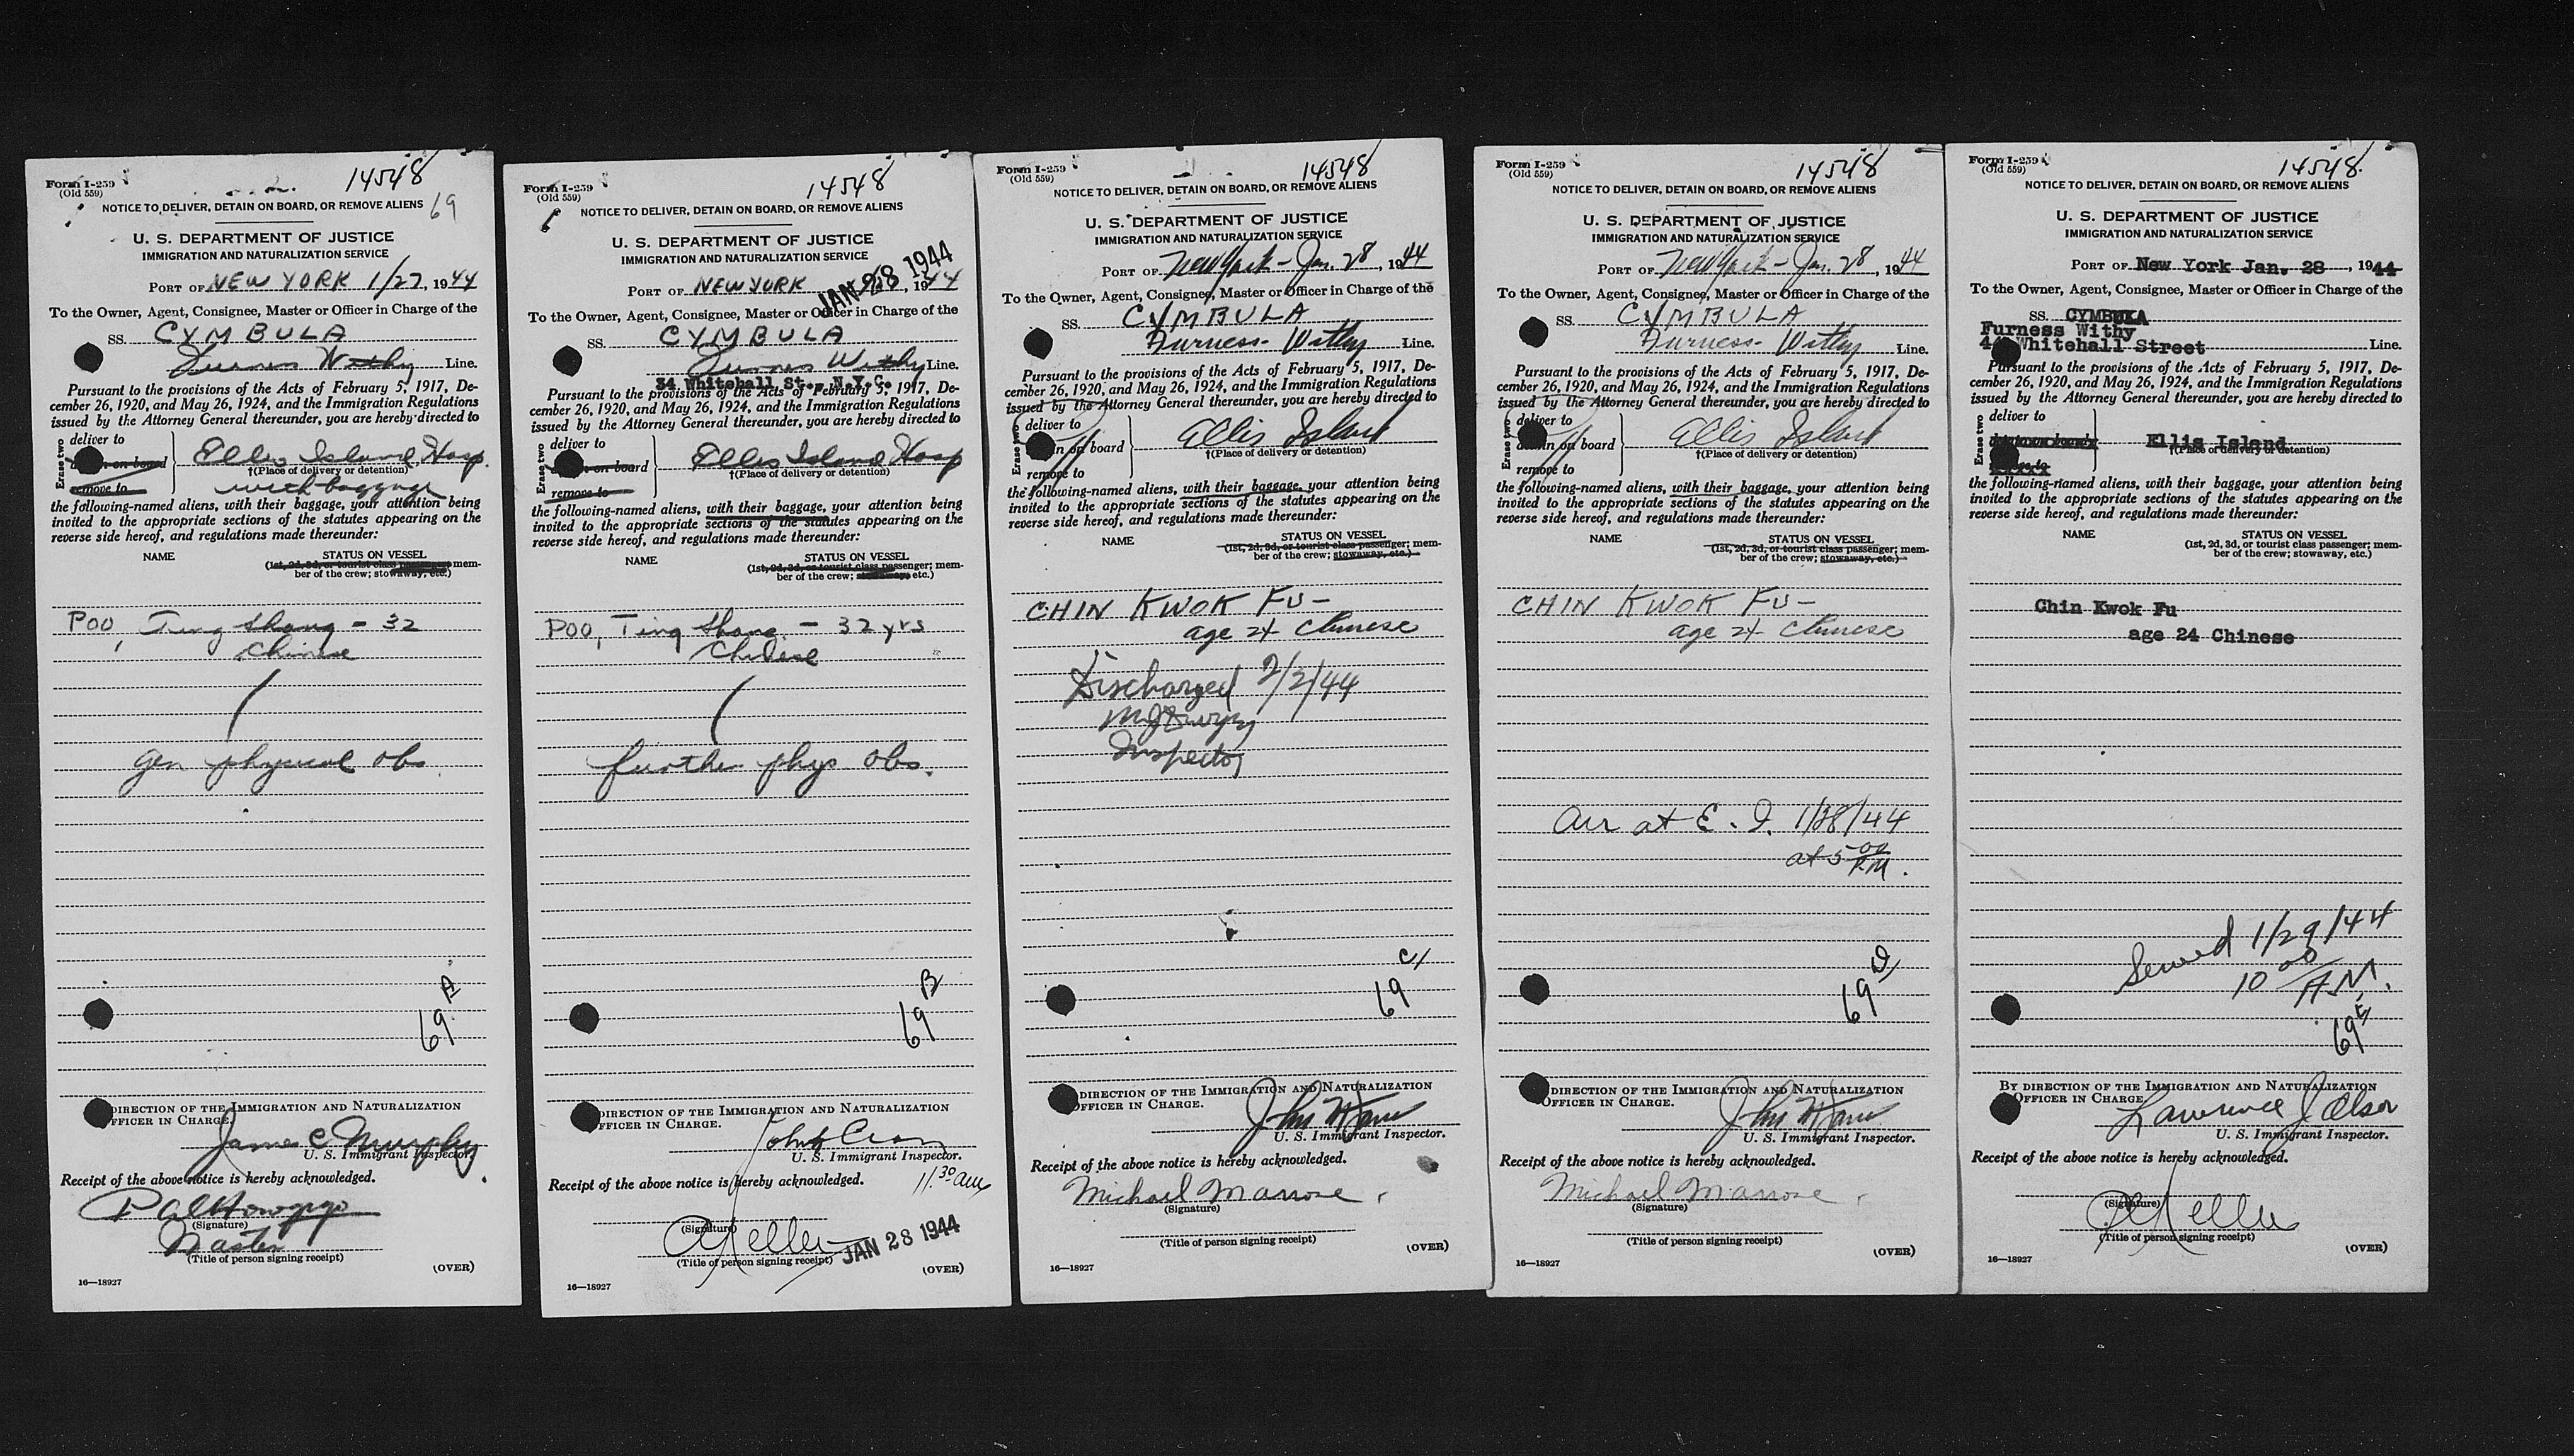 Form I-259
(Old 559)
14548
NOTICE TO DELIVER, DETAIN ON BOARD, OR REMOVE ALIENS
69
U. S. DEPARTMENT OF JUSTICE
IMMIGRATION AND NATURALIZATION SERVICE
PORT OF NEW YORK 1/27, 1944
To the Owner, Agent, Consignee, Master or Officer in Charge of the
SS. CYMBULA
Furness Withy Line.
Pursuant to the provisions of the Acts of February 5, 1917, De-
cember 26, 1920, and May 26, 1924, and the Immigration Regulations
issued by the Attorney General thereunder, you are hereby directed to
Erase two
deliver to
on board
remove to
Ellis Island Hosp.
†(Place of delivery or detention)
with baggage
the following-named aliens, with their baggage, your attention being
invited to the appropriate sections of the statutes appearing on the
reverse side hereof, and regulations made thereunder:
NAME
STATUS ON VESSEL
(1st, 2d, 3d, or tourist class passenger; mem-
ber of the crew; stowaway, etc.)
Poo, Ting Shang - 32
Chinese
gen physical obs.
A
69
DIRECTION OF THE IMMIGRATION AND NATURALIZATION
OFFICER IN CHARGE.
James C Murphy
U. S. Immigrant Inspector.
Receipt of the above notice is hereby acknowledged.
(Signature)
Master
(Title of person signing receipt)
(OVER)
16—18927
Form I-259
(Old 559)
14548
NOTICE TO DELIVER, DETAIN ON BOARD, OR REMOVE ALIENS
U. S. DEPARTMENT OF JUSTICE
IMMIGRATION AND NATURALIZATION SERVICE
JAN 28 1944
PORT OF NEW YORK , 1944
To the Owner, Agent, Consignee, Master or Officer in Charge of the
SS. CYMBULA
Furness Withy Line.
34 Whitehall St., N.Y.C.
Pursuant to the provisions of the Acts of February 5, 1917, De-
cember 26, 1920, and May 26, 1924, and the Immigration Regulations
issued by the Attorney General thereunder, you are hereby directed to
Erase two
deliver to
on board
remove to
Ellis Island Hosp
†(Place of delivery or detention)
the following-named aliens, with their baggage, your attention being
invited to the appropriate sections of the statutes appearing on the
reverse side hereof, and regulations made thereunder:
NAME
STATUS ON VESSEL
(1st, 2d, 3d, or tourist class passenger; mem-
ber of the crew; stowaway, etc.)
Poo, Ting Shang - 32 yrs
Chinese
further phys obs.
B
69
DIRECTION OF THE IMMIGRATION AND NATURALIZATION
OFFICER IN CHARGE.
U. S. Immigrant Inspector.
Receipt of the above notice is hereby acknowledged.
11.30 am
(Signature)
A Keller
JAN 28 1944
(Title of person signing receipt)
(OVER)
16—18927
Form I-259
(Old 559)
14548
NOTICE TO DELIVER, DETAIN ON BOARD, OR REMOVE ALIENS
U. S. DEPARTMENT OF JUSTICE
IMMIGRATION AND NATURALIZATION SERVICE
PORT OF New York - Jan. 28, 1944
To the Owner, Agent, Consignee, Master or Officer in Charge of the
SS. CYMBULA
Furness-Withy Line.
Pursuant to the provisions of the Acts of February 5, 1917, De-
cember 26, 1920, and May 26, 1924, and the Immigration Regulations
issued by the Attorney General thereunder, you are hereby directed to
Erase two
deliver to
in on board
remove to
Ellis Island
†(Place of delivery or detention)
the following-named aliens, with their baggage, your attention being
invited to the appropriate sections of the statutes appearing on the
reverse side hereof, and regulations made thereunder:
NAME
STATUS ON VESSEL
(1st, 2d, 3d, or tourist class passenger; mem-
ber of the crew; stowaway, etc.)
CHIN KWOK FU -
age 24 Chinese
Discharged 2/2/44
Inspector
C
69
DIRECTION OF THE IMMIGRATION AND NATURALIZATION
OFFICER IN CHARGE.
U. S. Immigrant Inspector.
Receipt of the above notice is hereby acknowledged.
Michael Marrone
(Signature)
(Title of person signing receipt)
(OVER)
16—18927
Form I-259
(Old 559)
14548
NOTICE TO DELIVER, DETAIN ON BOARD, OR REMOVE ALIENS
U. S. DEPARTMENT OF JUSTICE
IMMIGRATION AND NATURALIZATION SERVICE
PORT OF New York - Jan. 28, 1944
To the Owner, Agent, Consignee, Master or Officer in Charge of the
SS. CYMBULA
Furness-Withy Line.
Pursuant to the provisions of the Acts of February 5, 1917, De-
cember 26, 1920, and May 26, 1924, and the Immigration Regulations
issued by the Attorney General thereunder, you are hereby directed to
Erase two
deliver to
detain on board
remove to
Ellis Island
†(Place of delivery or detention)
the following-named aliens, with their baggage, your attention being
invited to the appropriate sections of the statutes appearing on the
reverse side hereof, and regulations made thereunder:
NAME
STATUS ON VESSEL
(1st, 2d, 3d, or tourist class passenger; mem-
ber of the crew; stowaway, etc.)
CHIN KWOK FU -
age 24 Chinese
Arr at E. I. 1/28/44
at 5 00 P.M.
D
69
DIRECTION OF THE IMMIGRATION AND NATURALIZATION
OFFICER IN CHARGE.
U. S. Immigrant Inspector.
Receipt of the above notice is hereby acknowledged.
Michael Marrone
(Signature)
(Title of person signing receipt)
(OVER)
16—18927
Form I-259
(Old 559)
14548
NOTICE TO DELIVER, DETAIN ON BOARD, OR REMOVE ALIENS
U. S. DEPARTMENT OF JUSTICE
IMMIGRATION AND NATURALIZATION SERVICE
PORT OF New York Jan. 28, 1944
To the Owner, Agent, Consignee, Master or Officer in Charge of the
SS. CYMBUKA
Furness Withy
Whitehall Street Line.
Pursuant to the provisions of the Acts of February 5, 1917, De-
cember 26, 1920, and May 26, 1924, and the Immigration Regulations
issued by the Attorney General thereunder, you are hereby directed to
Erase two
deliver to
Ellis Island
†(Place of delivery or detention)
the following-named aliens, with their baggage, your attention being
invited to the appropriate sections of the statutes appearing on the
reverse side hereof, and regulations made thereunder:
NAME
STATUS ON VESSEL
(1st, 2d, 3d, or tourist class passenger; mem-
ber of the crew; stowaway, etc.)
Chin Kwok Fu
age 24 Chinese
Served 1/29/44
10 00 A.M.
69 E
BY DIRECTION OF THE IMMIGRATION AND NATURALIZATION
OFFICER IN CHARGE
Lawrence J Olson
U. S. Immigrant Inspector.
Receipt of the above notice is hereby acknowledged.
(Signature)
A Keller
(Title of person signing receipt)
(OVER)
16—18927